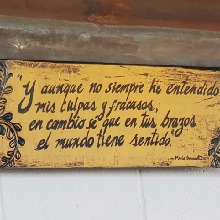 "Y aunque no siempre he entendido
mis culpas y fracasos,
en cambio sé que en tus brazos
el mundo tiene sentido."
Mario Benedetti